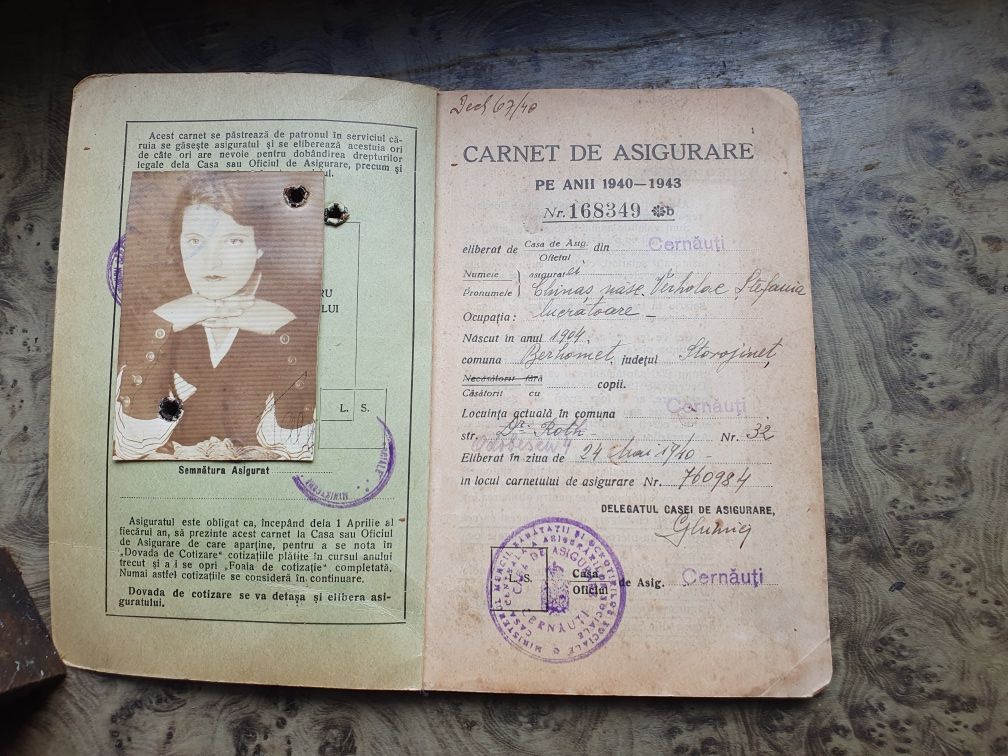 Acest carnet se păstrează de patronul în serviciul că-
ruia se găsește asiguratul și se eliberează acestuia ori
de câte ori are nevoie pentru dobândirea drepturilor
legale dela Casa sau Oficiul de Asigurare, precum și
RU
LUI
L. S.
Semnătura Asigurat
Asiguratul este obligat ca, începând dela 1 Aprilie al
fiecărui an, să prezinte acest carnet la Casa sau Oficiul
de Asigurare de care aparține, pentru a se nota în
„Dovada de Cotizare“ cotizațiile plătite în cursul anului
trecut și a i se opri „Foaia de cotizație“ completată.
Numai astfel cotizațiile se consideră în continuare.
Dovada de cotizare se va detașa și elibera asi-
guratului.
67/40
CARNET DE ASIGURARE
PE ANII 1940—1943
Nr. 168349 ✽b
eliberat de Casa de Asig. din Cernăuți
Oficiul
Numele asiguratei
Pronumele Chinaș nasc. Verholac Ștefania
Ocupația: lucrătoare —
Născut în anul 1904
comuna Berhomet, județul Storojineț,
Necăsătorit fără copii.
Căsătorit cu
Locuința actuală în comuna Cernăuți
str. Dr. Roth Nr. 32
Eliberat în ziua de 24 Mai 1940 -
in locul carnetului de asigurare Nr. 760984
DELEGATUL CASEI DE ASIGURARE,
L. S. Casa de Asig. Cernăuți
Oficiul
MINISTERUL MUNCII SĂNĂTĂȚII ȘI OCROTIRILOR SOCIALE
CASA CENTRALĂ A ASIGURĂRILOR SOCIALE
CASA DE ASIGURĂRI
CERNĂUȚI